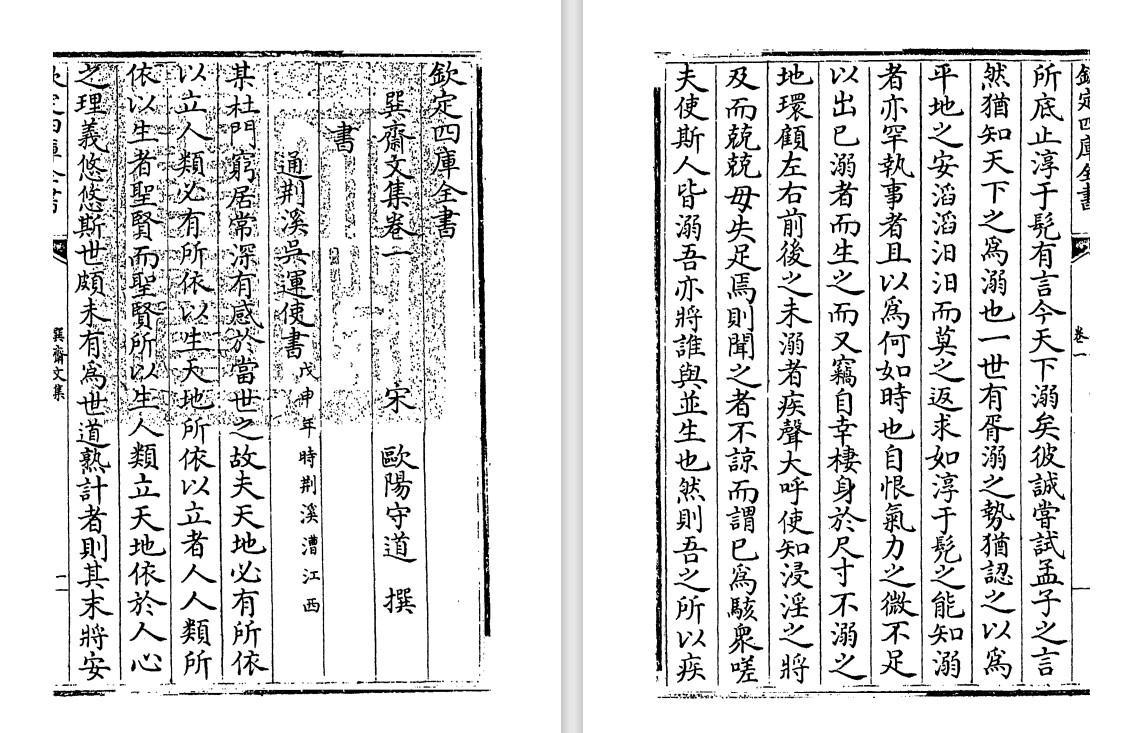 欽定四庫全書
巽齋文集卷一 宋 歐陽守道 撰
書
通荆溪吳運使書 戊申年時荆溪漕江西
某杜門窮居常深有感於當世之故夫天地必有所依
以立人類必有所依以生天地所依以立者人人類所
依以生者聖賢而聖賢所以生人類立天地依於人心
之理義悠悠斯世頗未有為世道熟計者則其末將安
巽齋文集 一
欽定四庫全書 卷一
所底止淳于髠有言今天下溺矣彼誠嘗試孟子之言
然猶知天下之為溺也一世有胥溺之勢猶認之以為
平地之安滔滔汨汨而莫之返求如淳于髠之能知溺
者亦罕執事者且以為何如時也自恨氣力之微不足
以出已溺者而生之而又竊自幸棲身於尺寸不溺之
地環顧左右前後之未溺者疾聲大呼使知浸淫之將
及而兢兢毋失足焉則聞之者不諒而謂已為駭衆嗟
夫使斯人皆溺吾亦將誰與並生也然則吾之所以疾